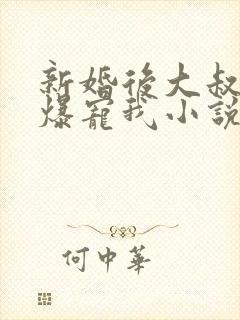 新婚後大叔
爆寵我小說
何中華